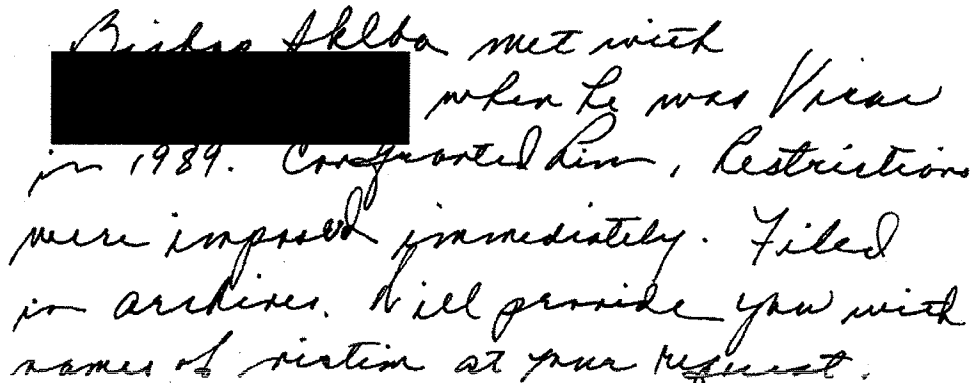 Bishop Sklba met with
when he was Vicar
in 1989. Confronted him, Restrictions
were imposed immediately. Filed
in archives. Will provide you with
names of victim at your request.